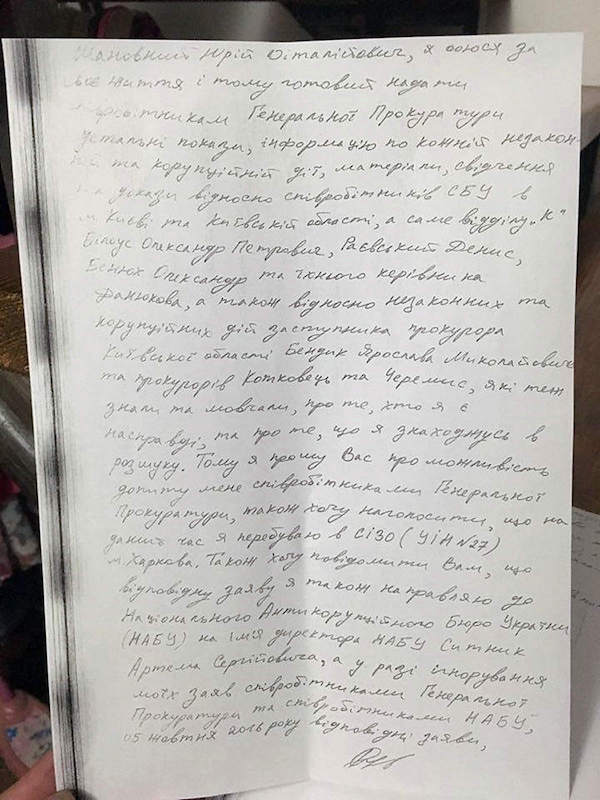 Шановний Юрій Віталійович, я боюся за
своє життя і тому готовий надати
співробітникам Генеральної Прокуратури
детальні покази, інформацію по кожній незакон-
ній та корупційній дії, матеріали, свідчення
та докази відносно співробітників СБУ в
м. Києві та Київській області, а саме відділу „К"
Білоус Олександр Петрович, Раєвський Денис,
Бенюх Олександр та їхнього керівника
Данюкова, а також відносно незаконних та
корупційних дій заступника прокурора
Київської області Бендик Ярослава Миколайовича
та прокурорів Котковець та Черемис, які теж
знали та мовчали, про те, хто я є
насправді, та про те, що я знаходжусь в
розшуку. Тому я прошу Вас про можливість
допиту мене співробітниками Генеральної
Прокуратури, також хочу наголосити, що на
даний час я перебуваю в СІЗО (УІН №27)
м. Харкова. Також хочу повідомити Вам, що
відповідну заяву я також направляю до
Національного Антикорупційного Бюро України
(НАБУ) на ім'я директора НАБУ Ситник
Артема Сергійовича, а у разі ігнорування
моїх заяв співробітниками Генеральної
Прокуратури та співробітниками НАБУ,
05 жовтня 2016 року відповідні заяви,